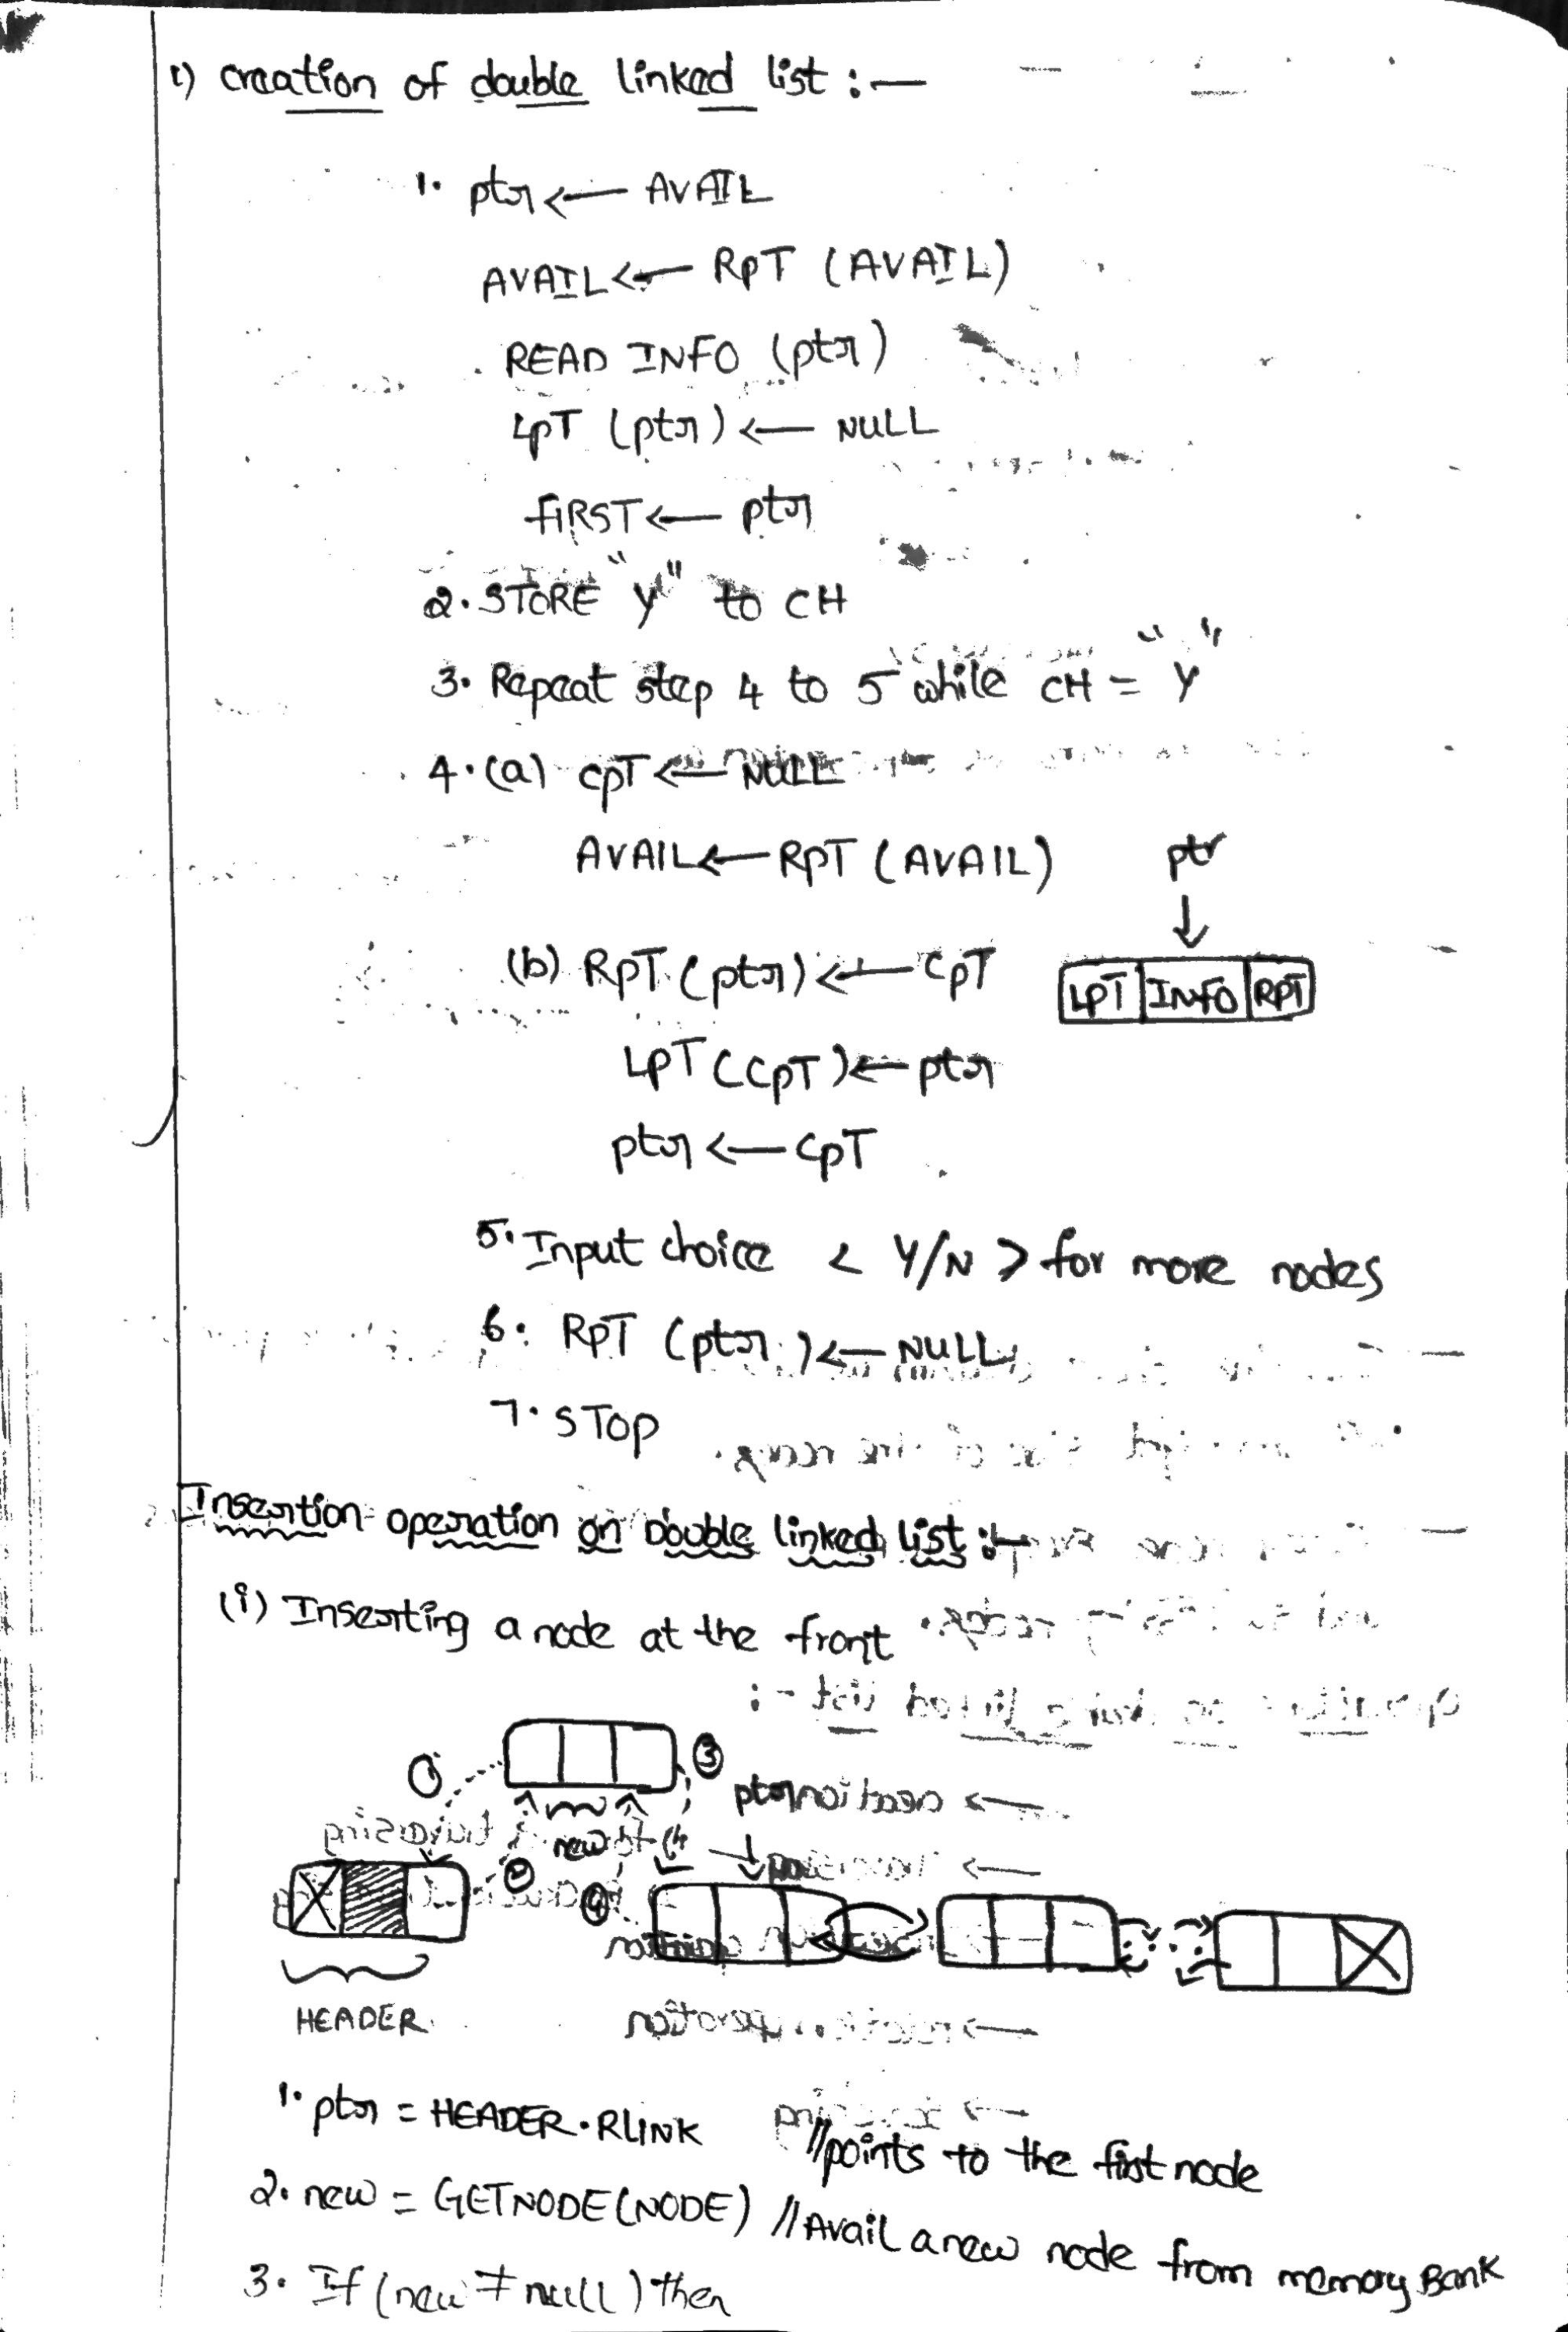 1) creation of double linked list :—
1. ptr ← AVAIL
AVAIL ← RPT (AVAIL)
READ INFO (ptr)
LPT (ptr) ← NULL
FIRST ← ptr
2. STORE "Y" to CH
3. Repeat step 4 to 5 while CH = "Y"
4. (a) CPT ← NULL
AVAIL ← RPT (AVAIL)
ptr
↓
(b) RPT (ptr) ← CPT
LPT INFO RPT
LPT (CPT) ← ptr
ptr ← CPT
5. Input choice < Y/N > for more nodes
6. RPT (ptr) ← NULL
7. STOP
Insertion operation on Double linked list :—
(i) Inserting a node at the front
① ③
ptr
new
② ④
HEADER
1. ptr = HEADER.RLINK //points to the first node
2. new = GETNODE(NODE) //Avail a new node from memory Bank
3. If (new ≠ null) then